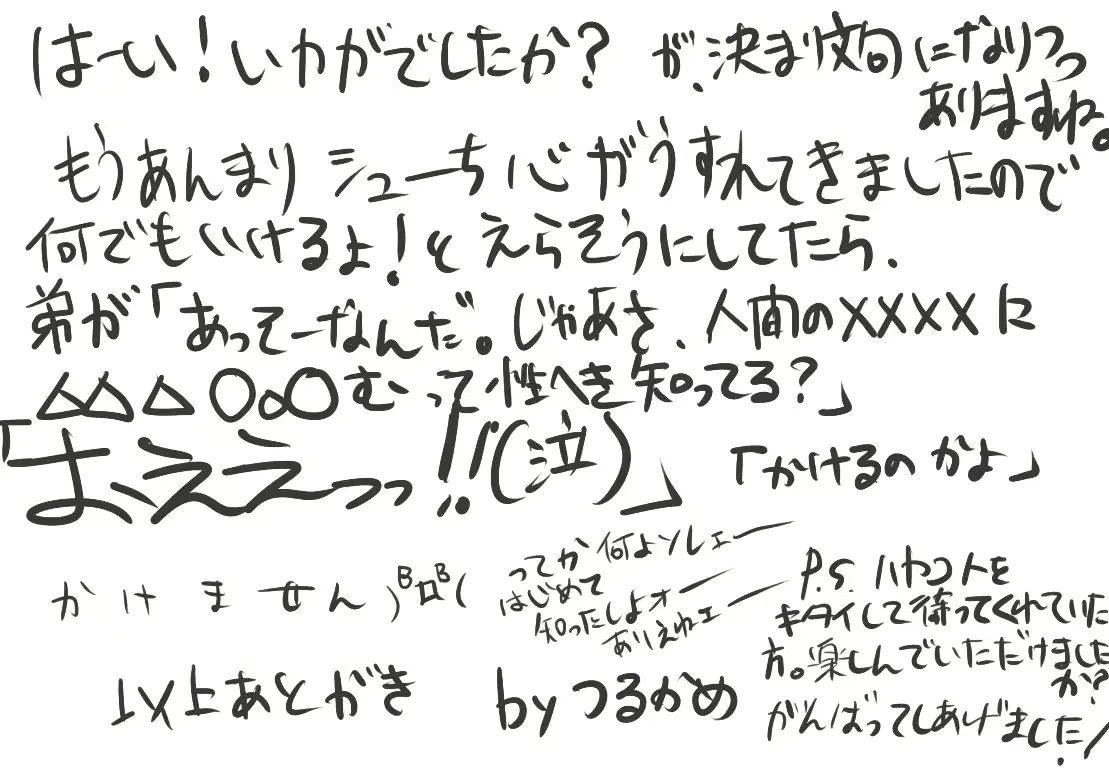 はーい!いかがでしたか? が、決まり文句になりつつ
ありますね。
もうあんまりシューち心がうすれてきましたので
何でもいけるよ!とえらそうにしてたら、
弟が「あってーなんだ。じゃあさ、人間のXXXXに
△△△〇〇〇むって性へき知ってる?」
「おええっっ!!(泣)」 「かけるのかよ」
かけません)BロB(
ってか何よソレェー
はじめて
知ったしよォー
ありえねェー
P.S. ハヤコトを
キタイして待ってくれていた
方。楽しんでいただけました
か?
がんばってしあげました!
以上あとがき by つるかめ